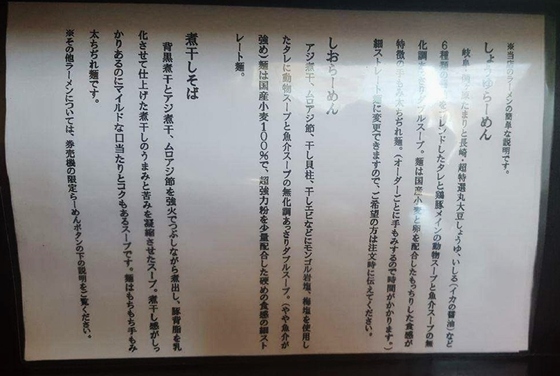 ※当店のラーメンの簡単な説明です。
しょうゆらーめん
岐阜 たまりと長崎、超特選丸大豆しょうゆ、いしる(イカの醤油)など
6種類の ブレンドしたタレと鶏豚メインの動物スープと魚介スープの無
化調 ダブルスープ。麺は国産小麦と卵を配合したもっちりした食感が
特徴 太ちぢれ麺。(オーダーごとに手もみするので時間がかかります。)
細ストレート麺に変更できますので、ご希望の方は注文時に伝えてください。
しおらーめん
アジ煮干、ムロアジ節、干し貝柱、干しエビなどにモンゴル岩塩、梅塩を使用し
たタレに動物スープと魚介スープの無化調あっさりダブルスープ。(やや魚介が
強め)麺は国産小麦100%で、超強力粉を少量配合した硬めの食感の細スト
レート麺。
煮干しそば
背黒煮干とアジ煮干、ムロアジ節を強火でつぶしながら煮出し、豚背脂を乳
化させて仕上げた煮干しのうまみと苦みを凝縮させたスープ。煮干し感がしっ
かりあるのにマイルドな口当たりとコクもあるスープです。麺はもちもち手もみ
太ちぢれ麺です。
※その他ラーメンについては、券売機の限定らーめんボタンの下の説明をご覧ください。